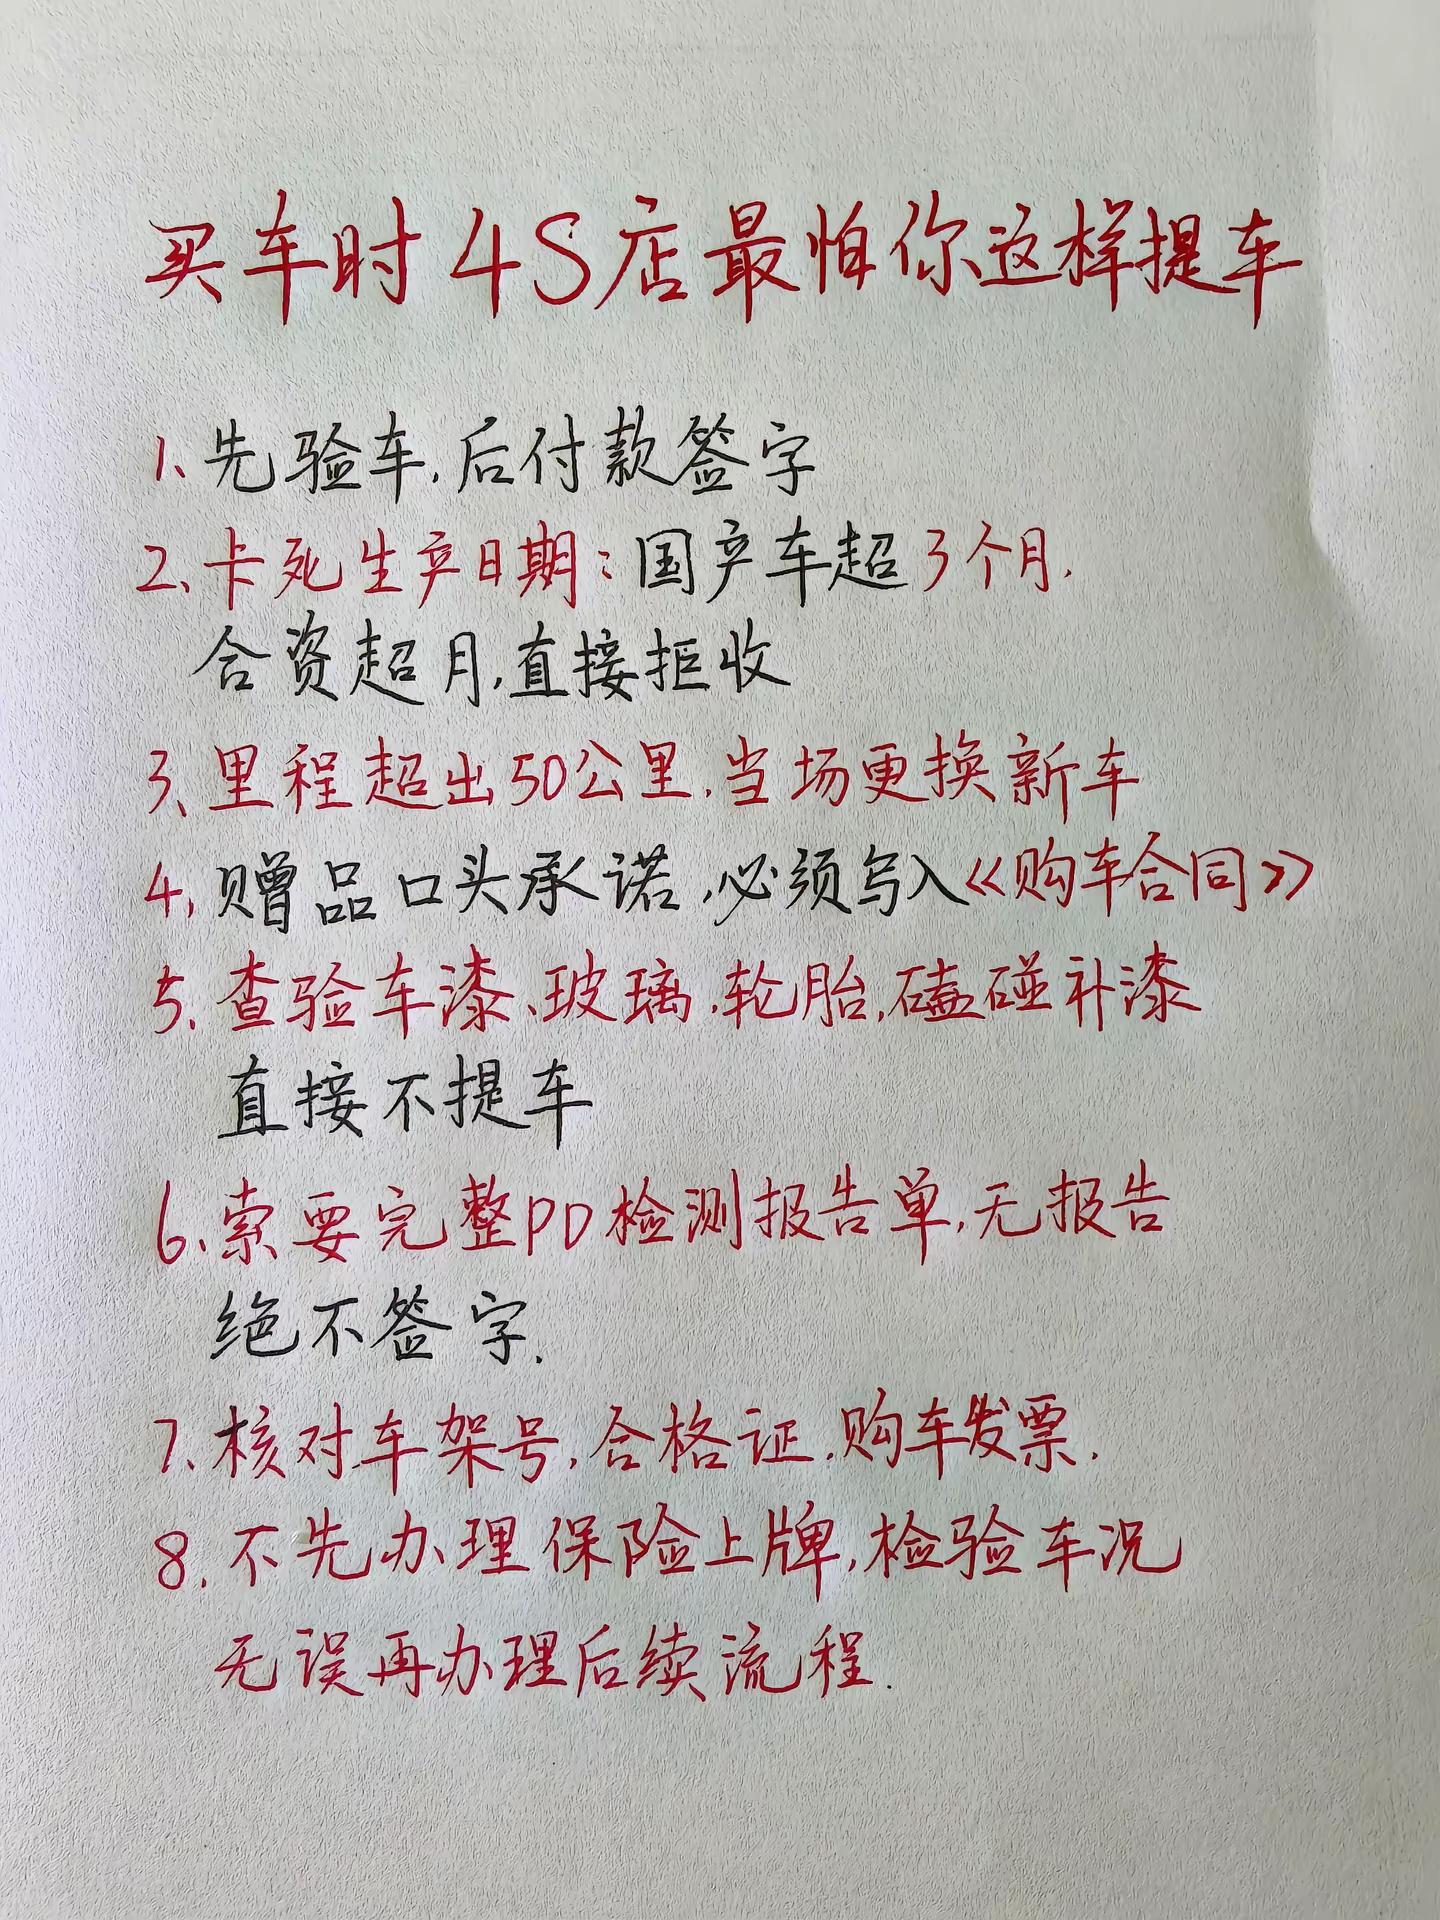 买车时4S店最怕你这样提车
1、先验车,后付款签字
2、卡死生产日期:国产车超3个月,
合资超月,直接拒收
3、里程超出50公里,当场更换新车
4,赠品口头承诺,必须写入《购车合同》
5、查验车漆、玻璃,轮胎,磕碰补漆
直接不提车
6、索要完整PD检测报告单,无报告
绝不签字.
7、核对车架号,合格证,购车发票.
8.不先办理保险上牌,检验车况
无误再办理后续流程.